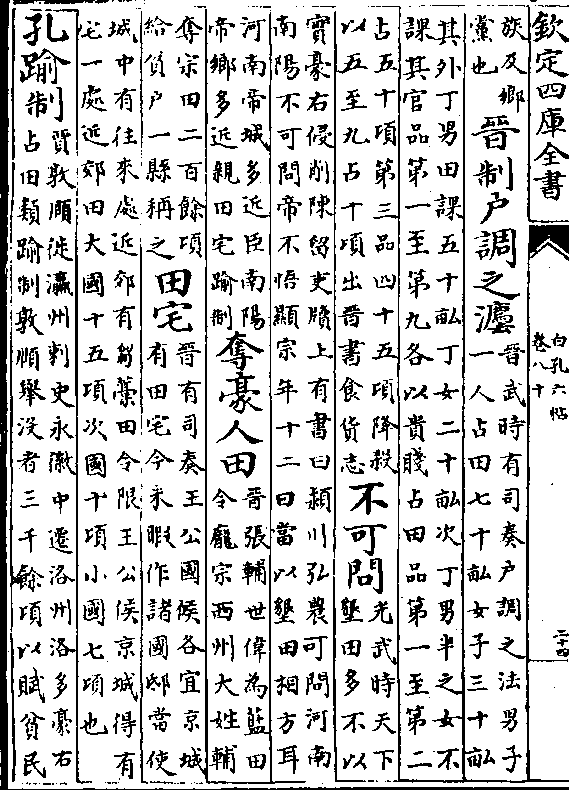 欽定四庫全書
白孔六帖
卷八十
二十四
族及鄉
黨也
晉制户調之灋
晉武時有司奏户調之法男子
一人占田七十畝女子三十畝
其外丁男田課五十畝丁女二十畝次丁男半之女不
課其官品第一至第九各以貴賤占田品第一至第二
占五十頃第三品四十五頃降殺
以五至九占十頃出晉書食貨志
不可問
光武時天下
墾田多不以
實豪右侵削陳留吏牘上有書曰潁川弘農可問河南
南陽不可問帝不悟顯宗年十二曰當以墾田相方耳
河南帝城多近臣南陽
帝鄉多近親田宅踰制
奪豪人田
晉張輔世偉為藍田
令龐宗西州大姓輔
奪宗田二百餘頃
給貧户一縣稱之
田宅
晉有司奏王公國侯各宜京城
有田宅今未暇作諸國邸當使
城中有往來處近郊有芻藁田令限王公侯京城得有
宅一處近郊田大國十五頃次國十頃小國七頃也
孔踰制
賈敦頤徙瀛州刺史永徽中遷洛州洛多豪右
占田類踰制敦頤舉没者三千餘頃以賦貧民